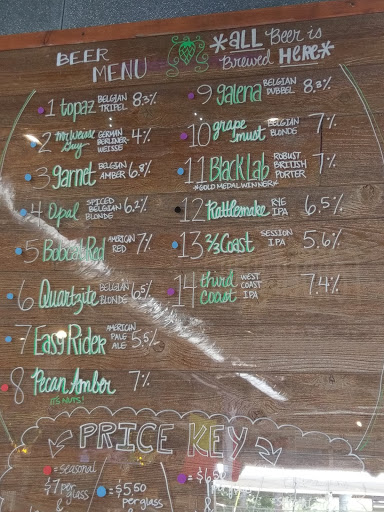 BEER
MENU
*ALL Beer is
Brewed HERE*
1 topaz BELGIAN TRIPEL 8.3%
2 mr. wease guy GERMAN BERLINER WEISSE 4%
3 garnet BELGIAN AMBER 6.8%
4 Opal SPICED BELGIAN BLONDE 6.2%
5 Bobcat Red AMERICAN RED 7%
6 Quartzite BELGIAN BLONDE 6.5%
7 Easy Rider AMERICAN PALE ALE 5.5%
8 Pecan Amber 7%
IT'S NUTS!
9 galena BELGIAN DUBBEL 8.3%
10 grape must BELGIAN BLONDE 7%
11 Black Lab ROBUST BRITISH PORTER 7%
*GOLD MEDAL WINNER*
12 Rattlesnake RYE IPA 6.5%
13 2/3 Coast SESSION IPA 5.6%
14 third coast WEST COAST IPA 7.4%
PRICE KEY
= seasonal
$7 per
glass
&
= $5.50
per glass